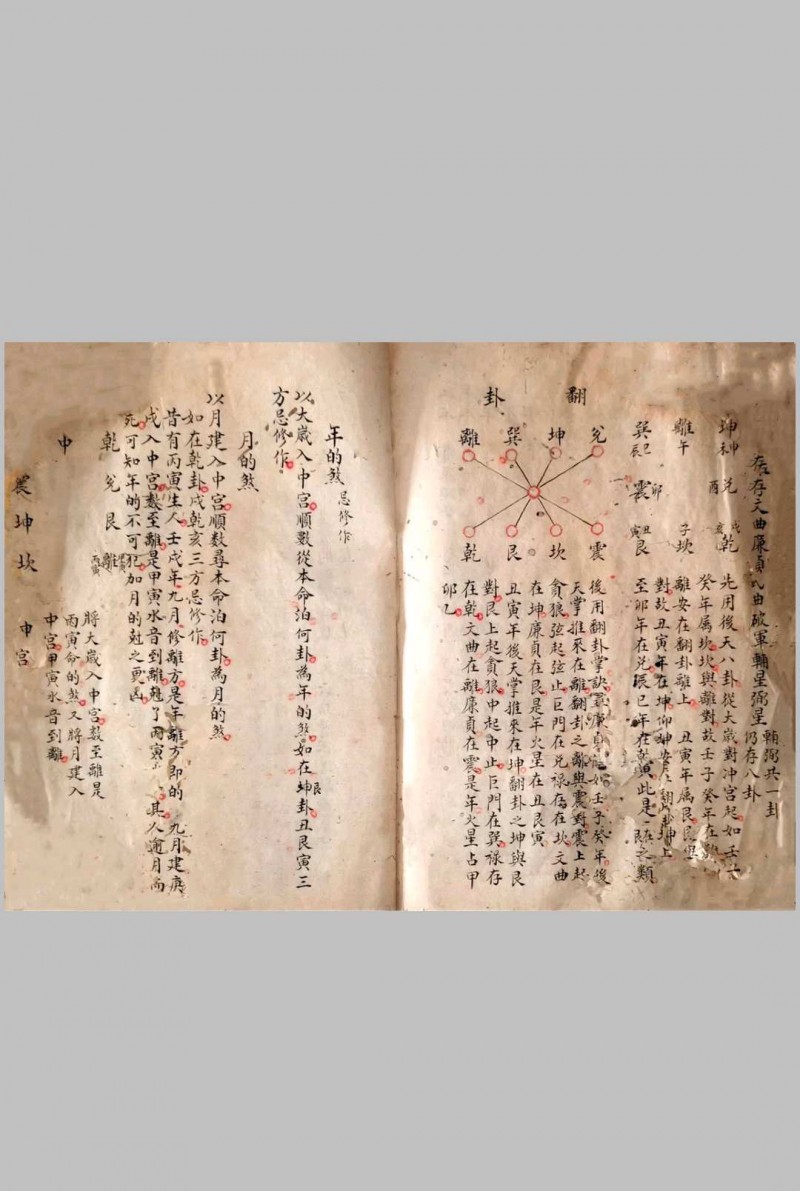 存文曲廉貞
曲破軍輔星弼星
輔弼共一卦
仍存八卦
坤 申未
兌 酉
乾 戌亥
離 午
子 坎
巽 巳辰
震 卯
丑寅 艮
先用後天八卦從大歲對冲宮起如壬子
癸年属坎坎與離對故壬子癸年在離
離安在翻卦離上 丑寅年属艮艮與
對故丑寅年在坤仰坤安在翻卦坤上
至卯年在兌辰巳年在乾
此是
之類
翻卦
兌
坤
巽
離
震
坎
艮
乾
後用翻卦掌訣
廉貞
如壬子癸年後
天掌推來在離翻卦之離與震對震上起
貪狼弦起弦止巨門在兌禄存在坎文曲
在坤廉貞在艮是年火星在丑艮寅
丑寅年後天掌推來在坤翻卦之坤與艮
對艮上起貪狼中起中止巨門在巽禄存
在乾文曲在離廉貞在震是年火星占甲
卯乙
年的煞 忌修作
以大歲入中宮順數從本命泊何卦為年的煞如在坤艮卦丑艮寅三
方忌修作
月的煞
以月建入中宮順數尋本命泊何卦為月的煞
如在乾卦戌乾亥三方忌修作
昔有丙寅生人壬戌年九月修離方是年離方即的 九月建庚
戌入中宮數至離是甲寅水音到離尅了丙寅 其人逾月而
死可知年的不可犯加月的尅之更凶
乾 兌 艮 離 丙寅
將大歲入中宮數至離是
丙寅命的煞又將月建入
中宮甲寅水音到離
中
震 坤 坎
中宮